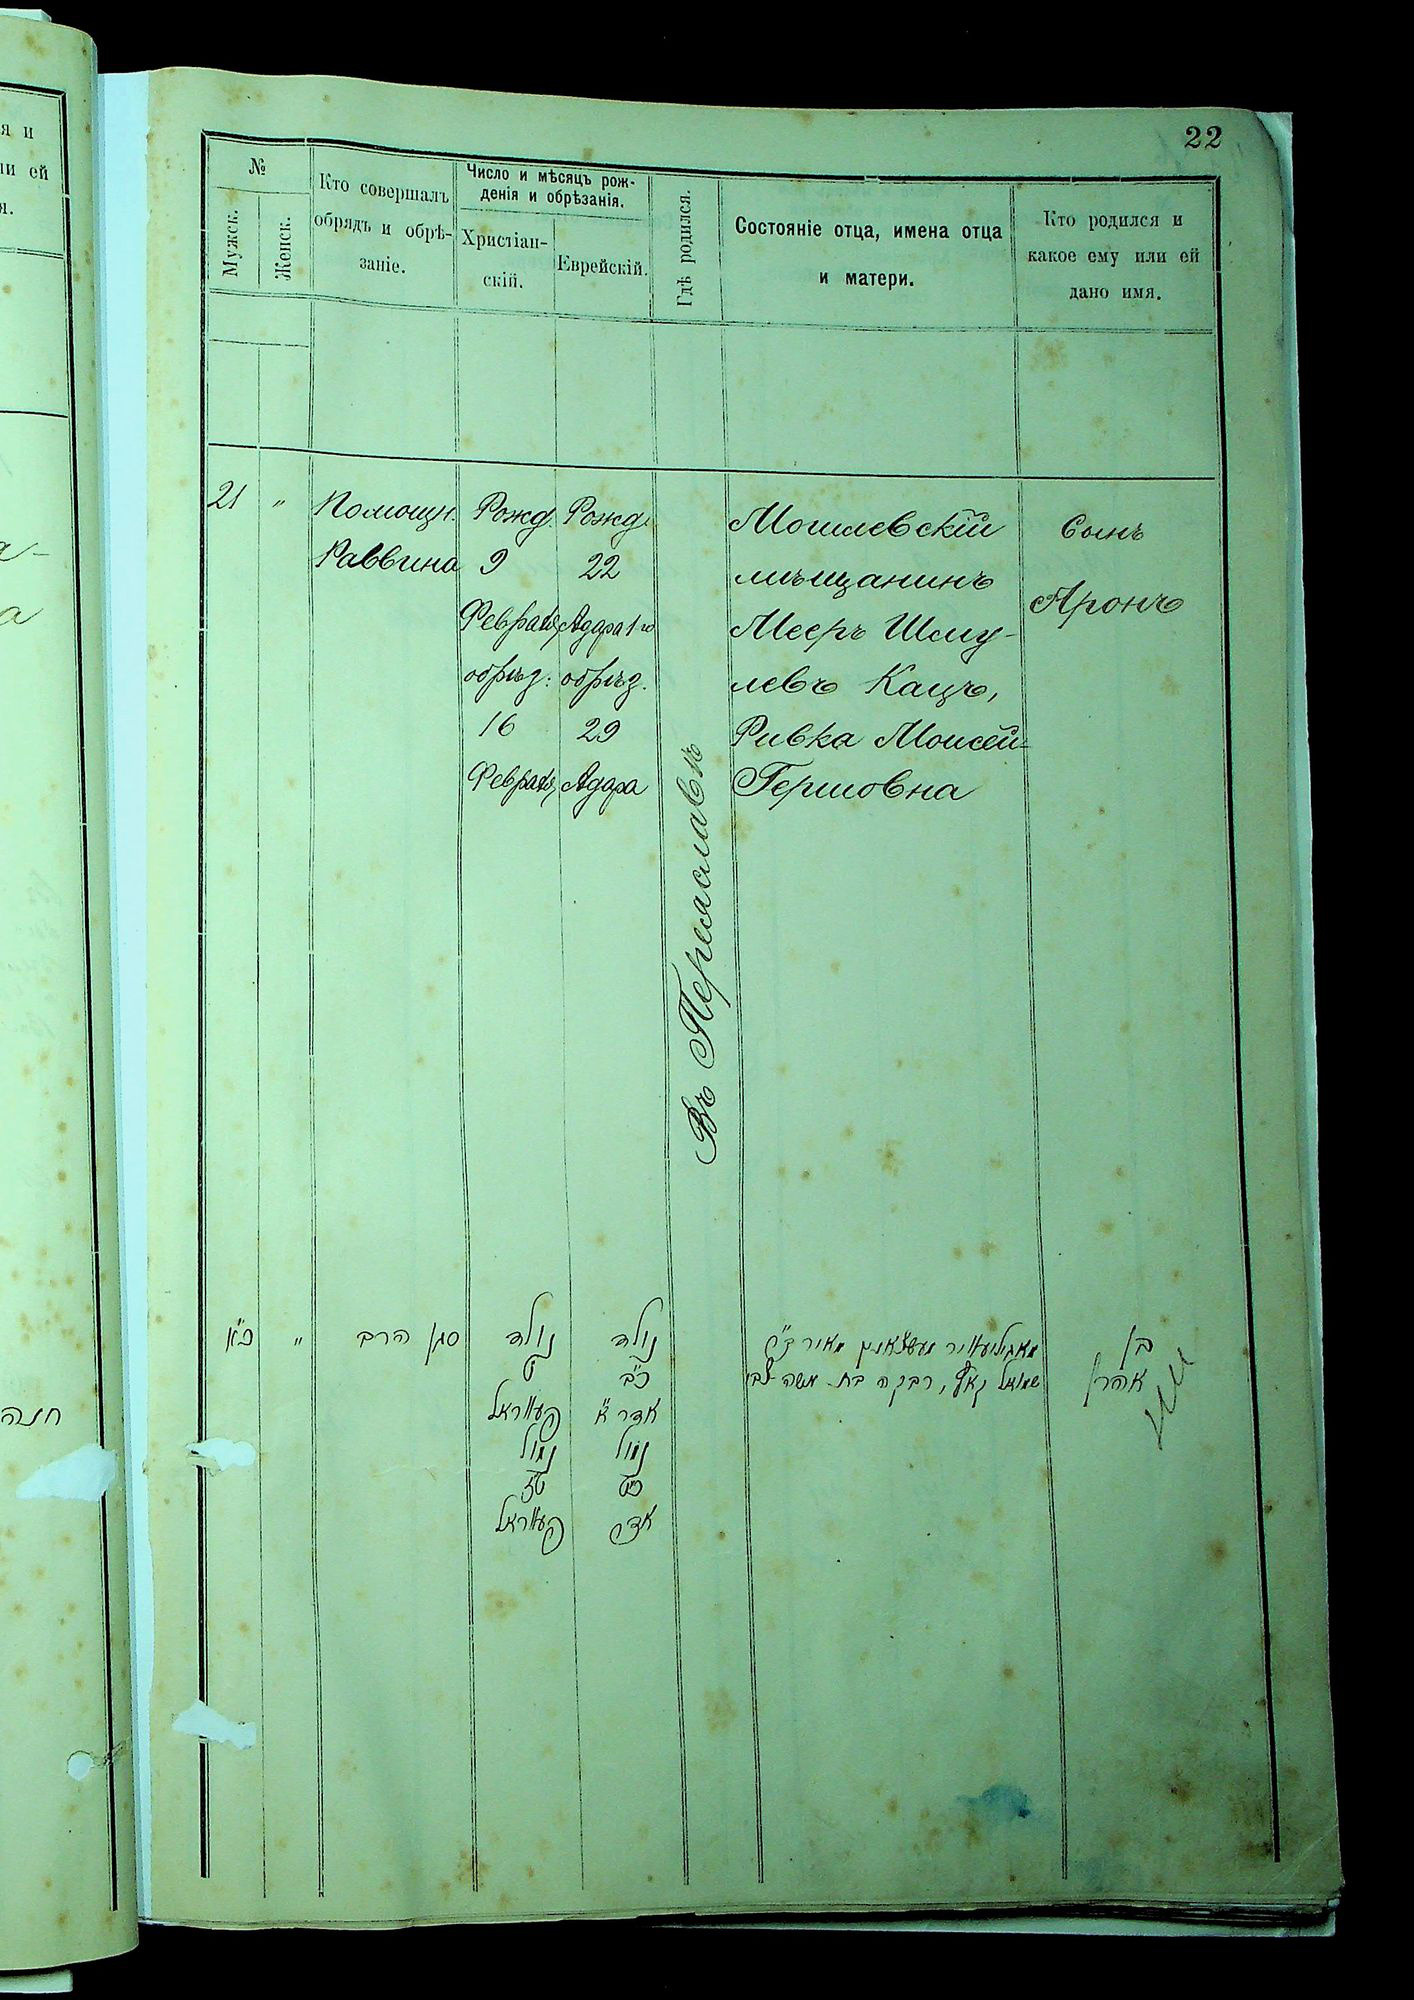 я и
ли ей
я.
а-
а
חנה
22
№
Мужск.
Женск.
Кто совершалъ
обрядъ и обрѣ-
заніе.
Число и мѣсяцъ рож-
денія и обрѣзанія.
Христіан-
скій.
Еврейскій.
Гдѣ родился.
Состояніе отца, имена отца
и матери.
Кто родился и
какое ему или ей
дано имя.
21
"
Помощн.
Раввина
Рожд.
9
Февраля
обрѣз.
16
Февраля
Рожд.
22
Адара 1го
обрѣз.
29
Адара
Въ Переяславѣ
Могилевскій
мѣщанинъ
Мееръ Шму-
левъ Кацъ,
Ривка Моисей-
Гершовна
Сынъ
Аронъ
כ"א
"
סגן הרב
נולד
ט
פעווראל
נמול
ט"ז
פעווראל
נולד
כ"ב
אדר א
נמול
כ"ט
אדר
מאיר
שמואל קאץ, רבקה בת משה
בן
אהרן